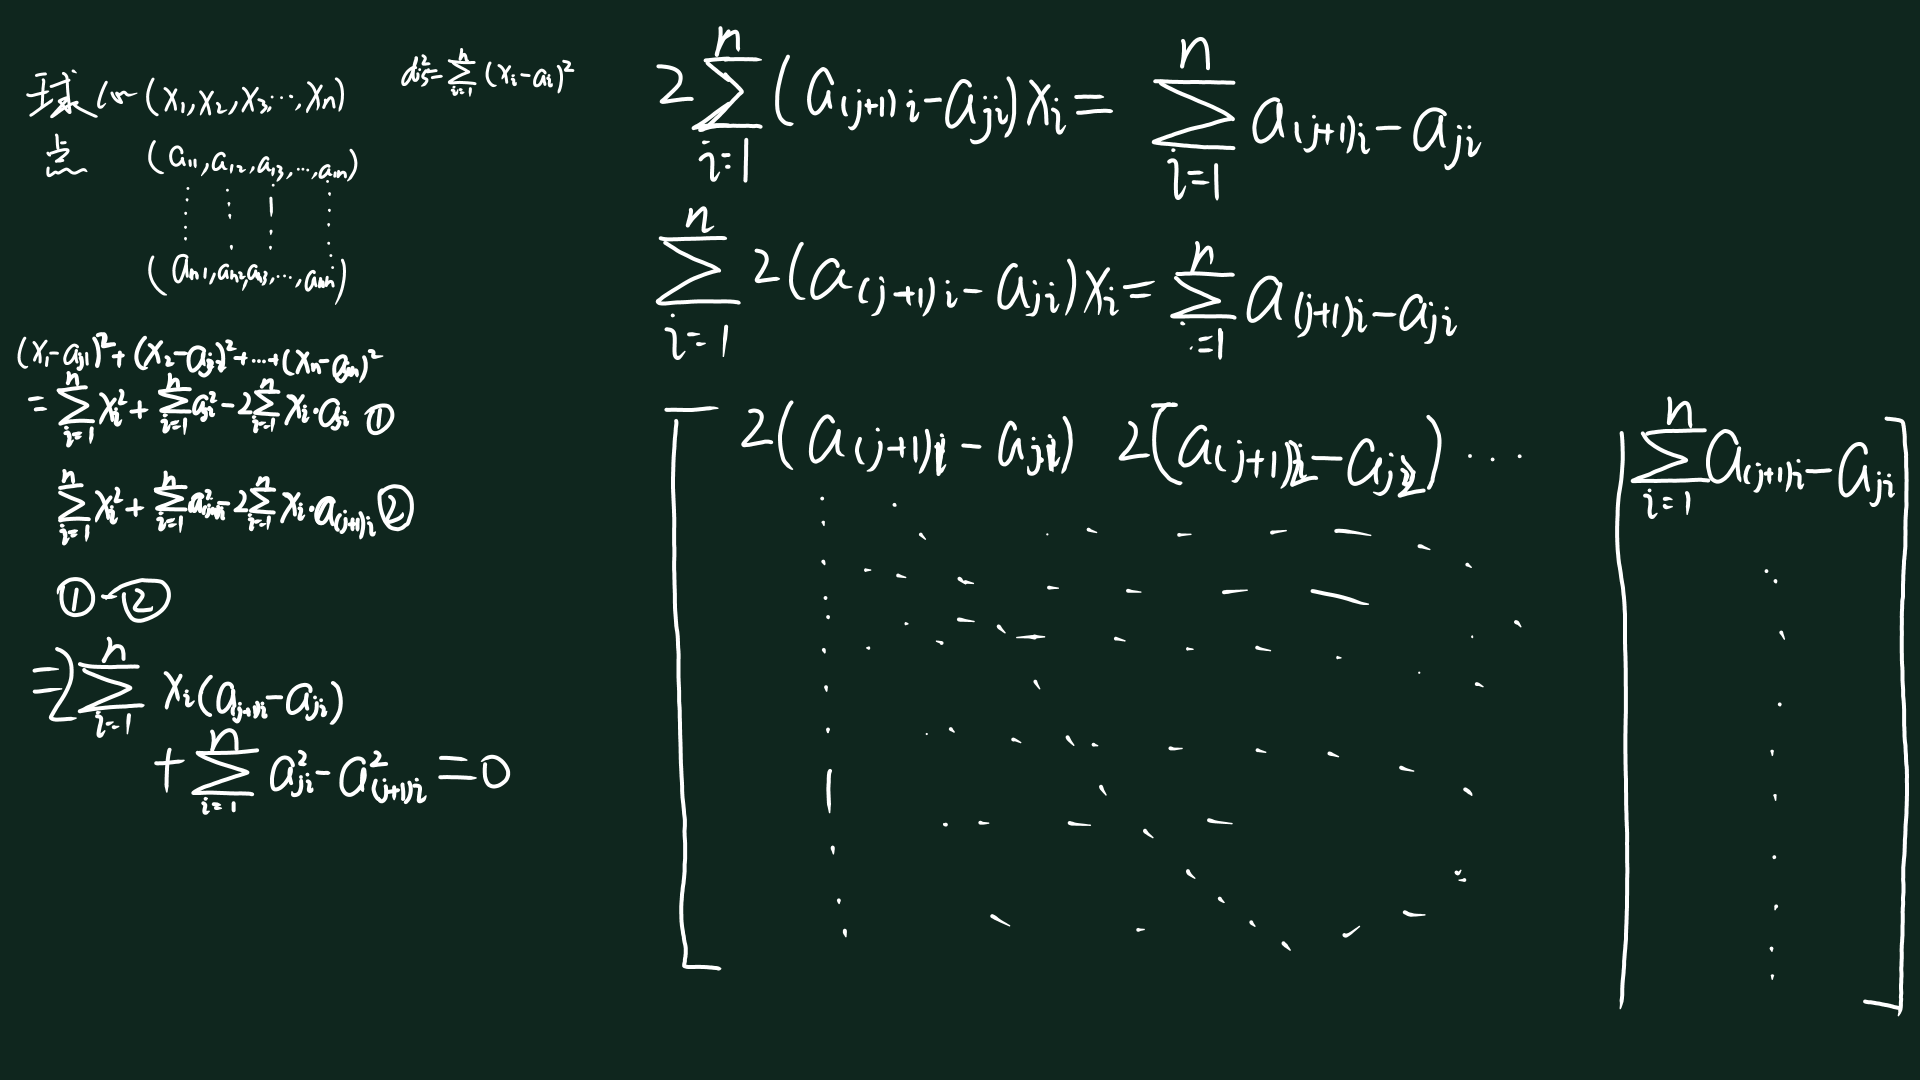 球心 (x₁,x₂,x₃,…,xₙ)
dis²=∑ᵢ₌₁ⁿ (xᵢ-aᵢ)²
点 (a₁₁,a₁₂,a₁₃,…,a₁ₙ)
(aₙ₁,aₙ₂,aₙ₃,…,aₙₙ)
(x₁-a_{j1})²+(x₂-a_{j2})²+…+(xₙ-a_{jn})²
=∑_{i=1}^{n} xᵢ²+∑_{i=1}^{n} a_{ji}²-2∑_{i=1}^{n} xᵢ·a_{ji} ①
∑_{i=1}^{n} xᵢ²+∑_{i=1}^{n} a_{(j+1)i}²-2∑_{i=1}^{n} xᵢ·a_{(j+1)i} ②
①-②
=2∑_{i=1}^{n} xᵢ(a_{(j+1)i}-a_{ji})
+∑_{i=1}^{n} a_{ji}²-a_{(j+1)i}²=0
2∑_{i=1}^{n} (a_{(j+1)i}-a_{ji})xᵢ=∑_{i=1}^{n} a_{(j+1)i}-a_{ji}
∑_{i=1}^{n} 2(a_{(j+1)i}-a_{ji})xᵢ=∑_{i=1}^{n} a_{(j+1)i}-a_{ji}
[2(a_{(j+1)1}-a_{j1}) 2(a_{(j+1)2}-a_{j2}) … |∑_{i=1}^{n} a_{(j+1)i}-a_{ji}]